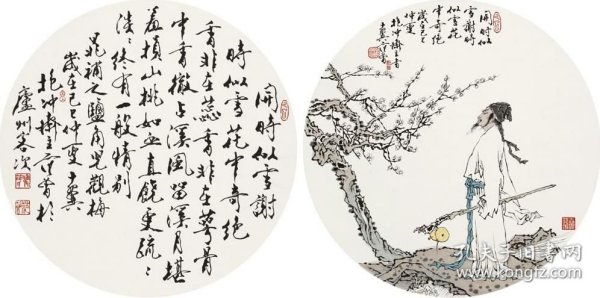 開時似雪謝
時似雪花中奇絕
香非在蕊香非在萼骨
中香徹占溪風留溪月堪
羞損山桃如血直饒更疏〻
淡〻終有一般情別
晁補之鹽角兒觀梅
歲在己巳仲夏十翼
抱沖齋主范曾於
廬州客次
開時似
雪謝時
似雪花
中奇絕
歲在己巳
仲夏
抱沖齋主
十翼范曾
孔夫子旧书网
www.kongfz.com